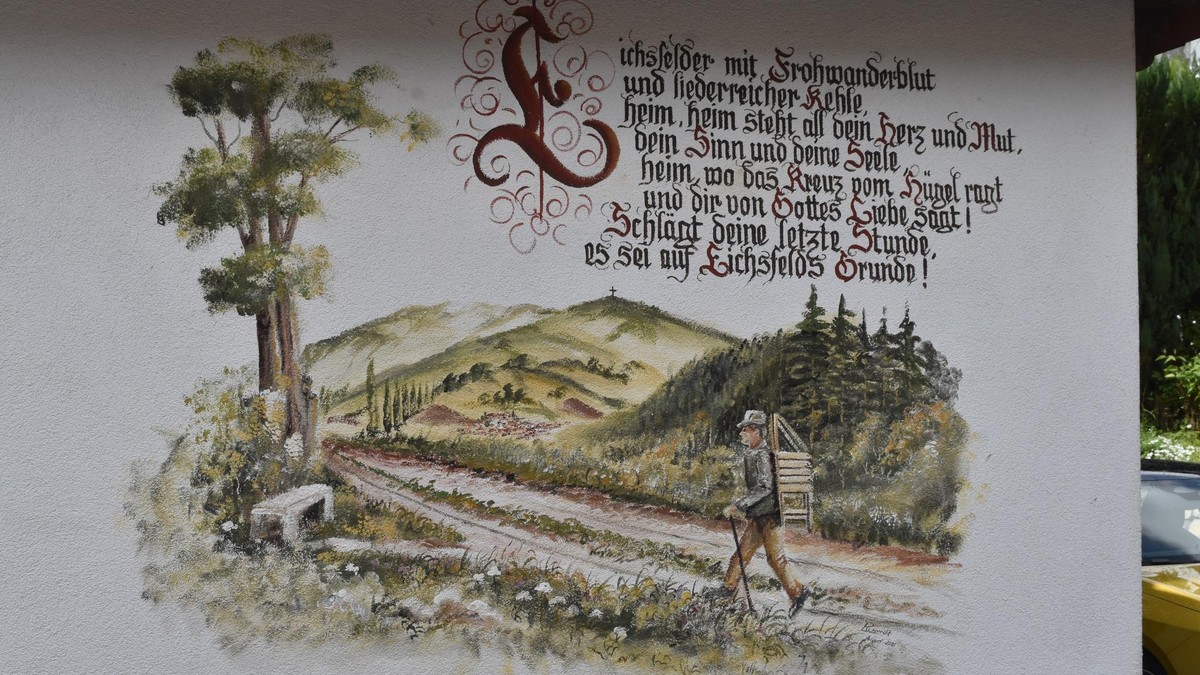 Eichsfelder mit Frohwanderblut
und liederreicher Kehle,
heim, heim steht all dein Herz und Mut,
dein Sinn und deine Seele,
heim, wo das Kreuz vom Hügel ragt
und dir von Gottes Liebe sagt!
Schlägt deine letzte Stunde,
es sei auf Eichsfelds Grunde!